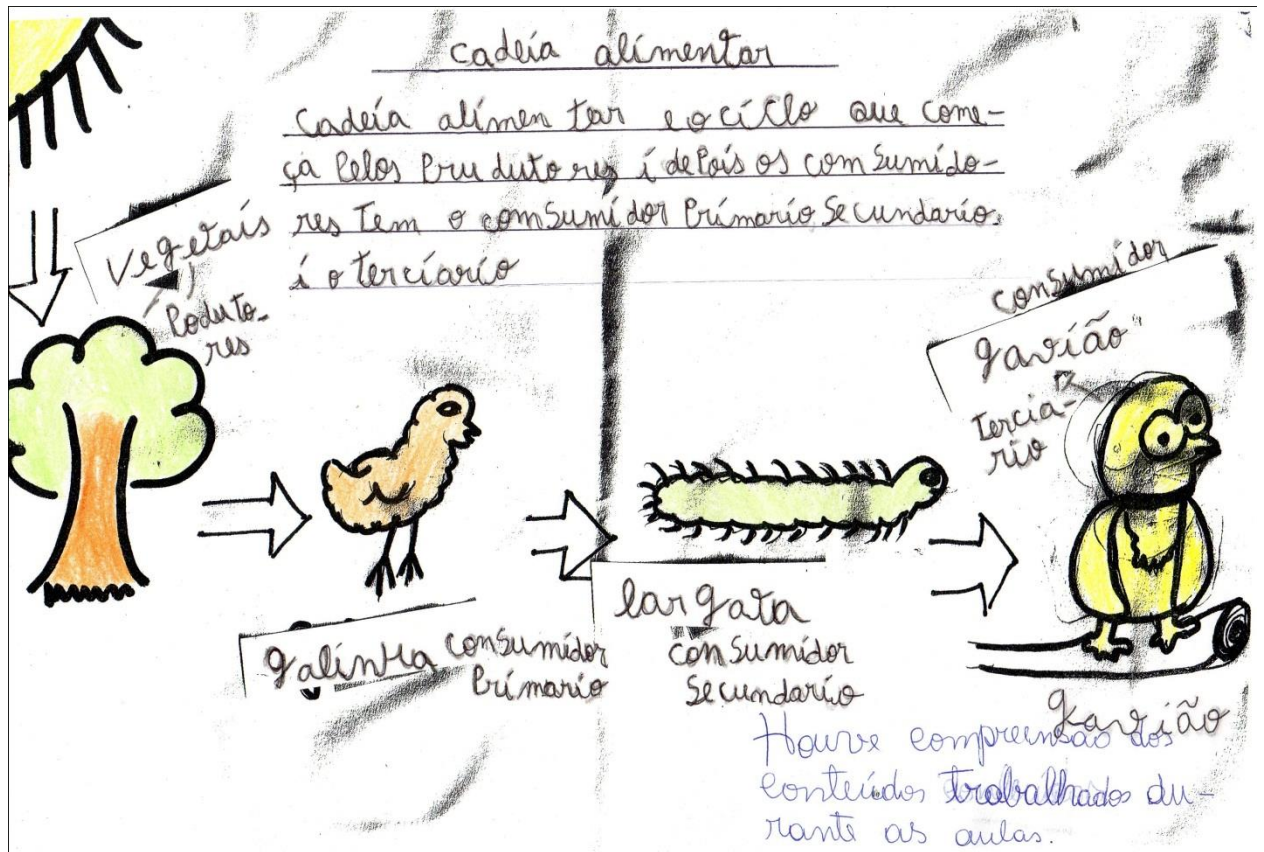 cadeia alimentar
Cadeia alimen tar e o ciclo que come-
ça Pelos Pru duto res i dePois os com Sumido-
res Tem o comSumidor Primario Se cundario.
i o terciario
Vegetais
Poduto-
res
consumidor
gavião
Tercia-
rio
galinha consumidor
Primario
largata
consumidor
Secundario
gavião
Houve compreensão dos
conteúdos trabalhados du-
rante as aulas.